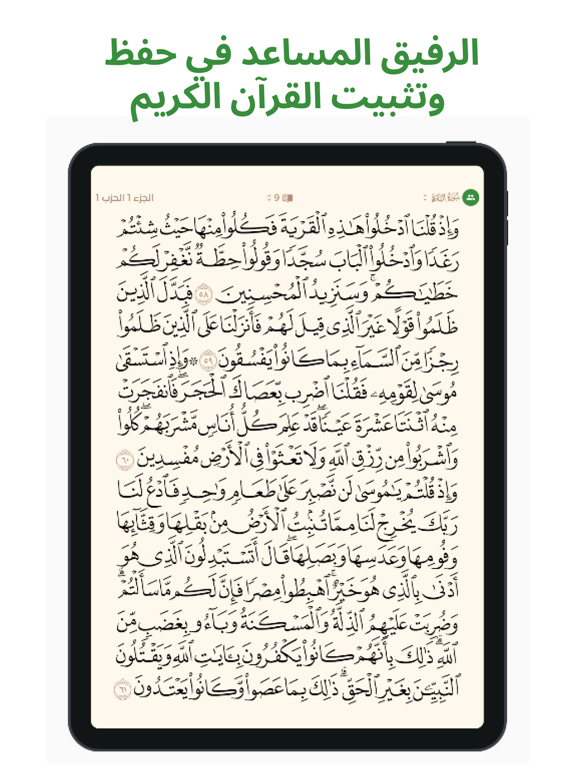 الرفيق المساعد في حفظ
وتثبيت القرآن الكريم
سورة البقرة 9 الجزء 1 الحزب 1
وَإِذْ قُلْنَا ٱدْخُلُوا۟ هَـٰذِهِ ٱلْقَرْيَةَ فَكُلُوا۟ مِنْهَا حَيْثُ شِئْتُمْ
رَغَدًا وَٱدْخُلُوا۟ ٱلْبَابَ سُجَّدًا وَقُولُوا۟ حِطَّةٌ نَّغْفِرْ لَكُمْ
خَطَـٰيَـٰكُمْ ۚ وَسَنَزِيدُ ٱلْمُحْسِنِينَ ٥٨ فَبَدَّلَ ٱلَّذِينَ
ظَلَمُوا۟ قَوْلًا غَيْرَ ٱلَّذِى قِيلَ لَهُمْ فَأَنزَلْنَا عَلَى ٱلَّذِينَ ظَلَمُوا۟
رِجْزًا مِّنَ ٱلسَّمَآءِ بِمَا كَانُوا۟ يَفْسُقُونَ ٥٩ ۞ وَإِذِ ٱسْتَسْقَىٰ
مُوسَىٰ لِقَوْمِهِۦ فَقُلْنَا ٱضْرِب بِّعَصَاكَ ٱلْحَجَرَ ۖ فَٱنفَجَرَتْ
مِنْهُ ٱثْنَتَا عَشْرَةَ عَيْنًا ۖ قَدْ عَلِمَ كُلُّ أُنَاسٍ مَّشْرَبَهُمْ ۖ كُلُوا۟
وَٱشْرَبُوا۟ مِن رِّزْقِ ٱللَّهِ وَلَا تَعْثَوْا۟ فِى ٱلْأَرْضِ مُفْسِدِينَ ٦٠
وَإِذْ قُلْتُمْ يَـٰمُوسَىٰ لَن نَّصْبِرَ عَلَىٰ طَعَامٍ وَٰحِدٍ فَٱدْعُ لَنَا
رَبَّكَ يُخْرِجْ لَنَا مِمَّا تُنۢبِتُ ٱلْأَرْضُ مِنۢ بَقْلِهَا وَقِثَّآئِهَا
وَفُومِهَا وَعَدَسِهَا وَبَصَلِهَا ۖ قَالَ أَتَسْتَبْدِلُونَ ٱلَّذِى هُوَ
أَدْنَىٰ بِٱلَّذِى هُوَ خَيْرٌ ۚ ٱهْبِطُوا۟ مِصْرًا فَإِنَّ لَكُم مَّا سَأَلْتُمْ ۗ
وَضُرِبَتْ عَلَيْهِمُ ٱلذِّلَّةُ وَٱلْمَسْكَنَةُ وَبَآءُو بِغَضَبٍ مِّنَ
ٱللَّهِ ۗ ذَٰلِكَ بِأَنَّهُمْ كَانُوا۟ يَكْفُرُونَ بِـَٔايَـٰتِ ٱللَّهِ وَيَقْتُلُونَ
ٱلنَّبِيِّـۧنَ بِغَيْرِ ٱلْحَقِّ ۗ ذَٰلِكَ بِمَا عَصَوا۟ وَّكَانُوا۟ يَعْتَدُونَ ٦١